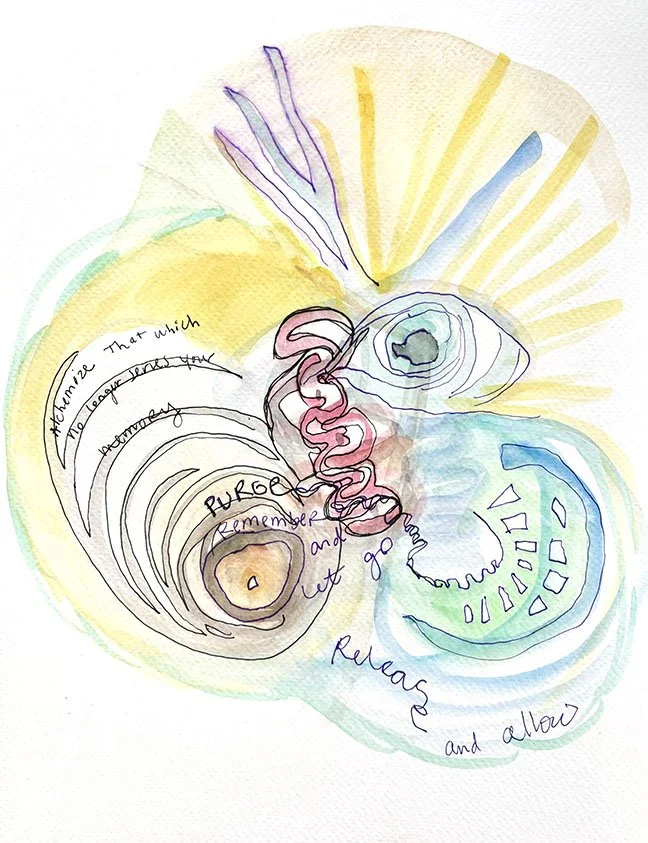 Alchemize That which
no longer serves your
memory
PURGE
remember
and
let go
Release
and allow